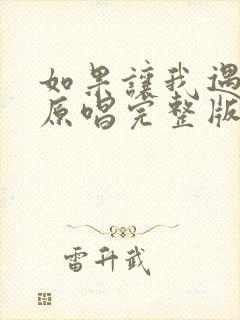 如果讓我遇
原唱完整版
雷升武